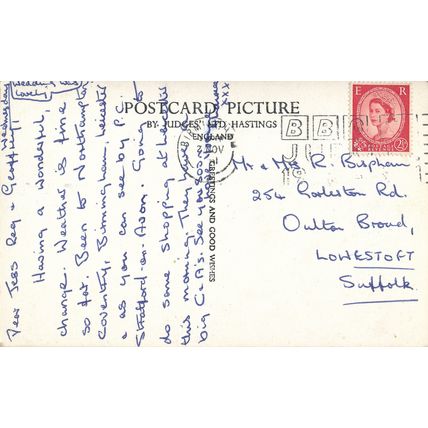 POSTCARD PICTURE
BY JUDGES' LTD HASTINGS
ENGLAND
GREETINGS AND GOOD WISHES
E R
2½
NOV
BB
Mr & Mrs R.
254 Gorleston Rd.
Oulton Broad,
LOWESTOFT
Suffolk.
Wednesday
Dear Jess Reg &
Having a wonderful
change. Weather is fine
so far. Been to Northampton
Coventry, Birmingham, Leicester
& as you can see by P.C.
Stratford-on-Avon. Going to
do some shopping at Leicester
this morning. They have
big C & A's. See you
xxx
Wedding was
lovely